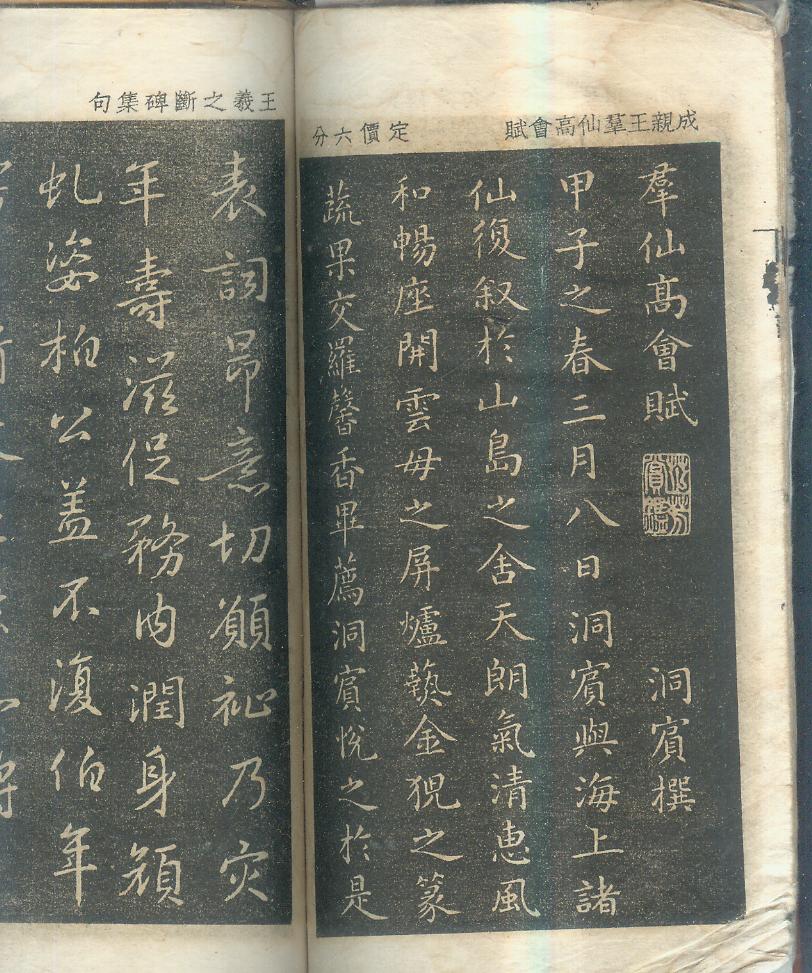 成親王羣仙高會賦
定價六分
羣仙高會賦
洞賓撰
甲子之春三月八日洞賓與海上諸
仙復叙於山島之舍天朗氣清惠風
和暢座開雲母之屏爐藝金猊之篆
蔬果交羅馨香畢薦洞賓悅之於是
王羲之斷碑集句
表詞昂意切願祉乃灾
年壽滋促務內潤身穎
虬姿柏公盖不復伯年